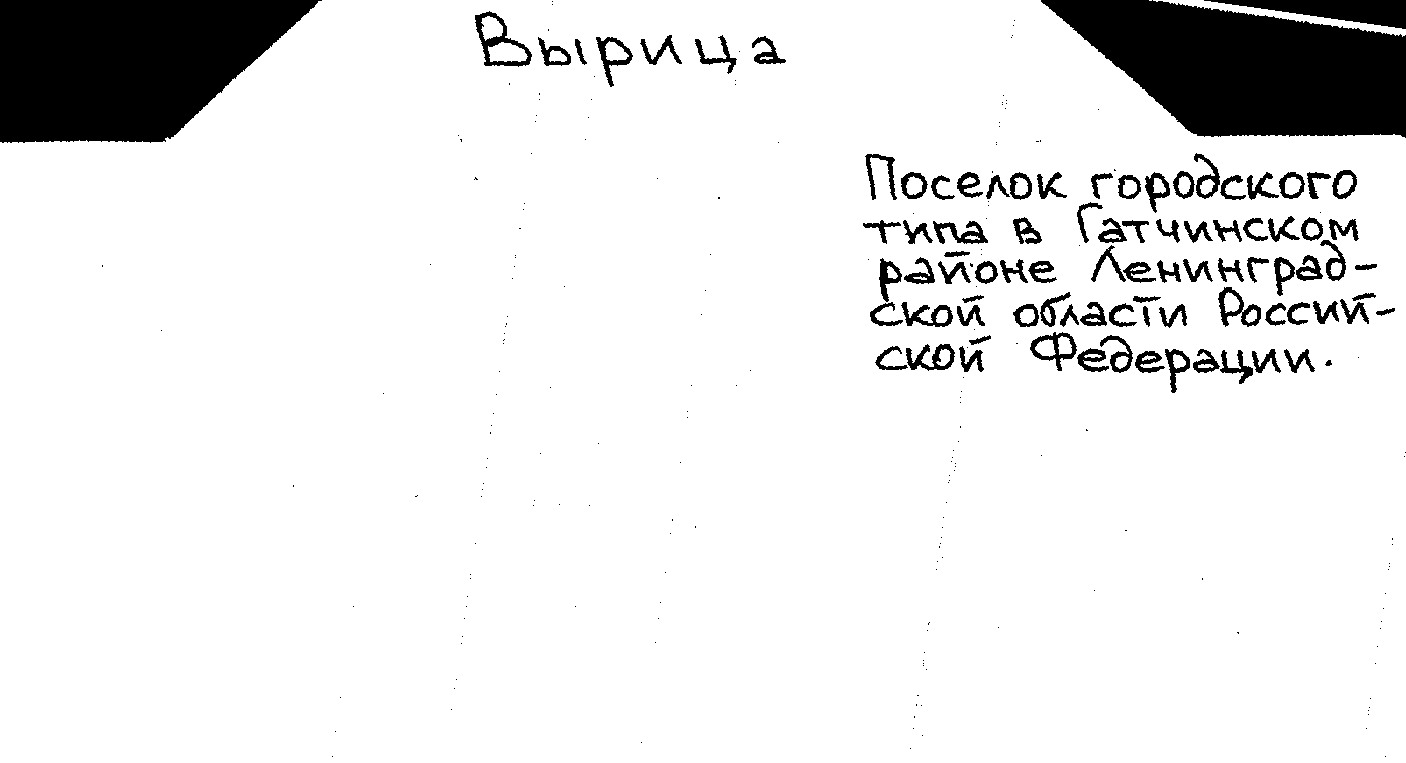 Вырица
Поселок городского
типа в Гатчинском
районе Ленинград-
ской области Россий-
ской Федерации.